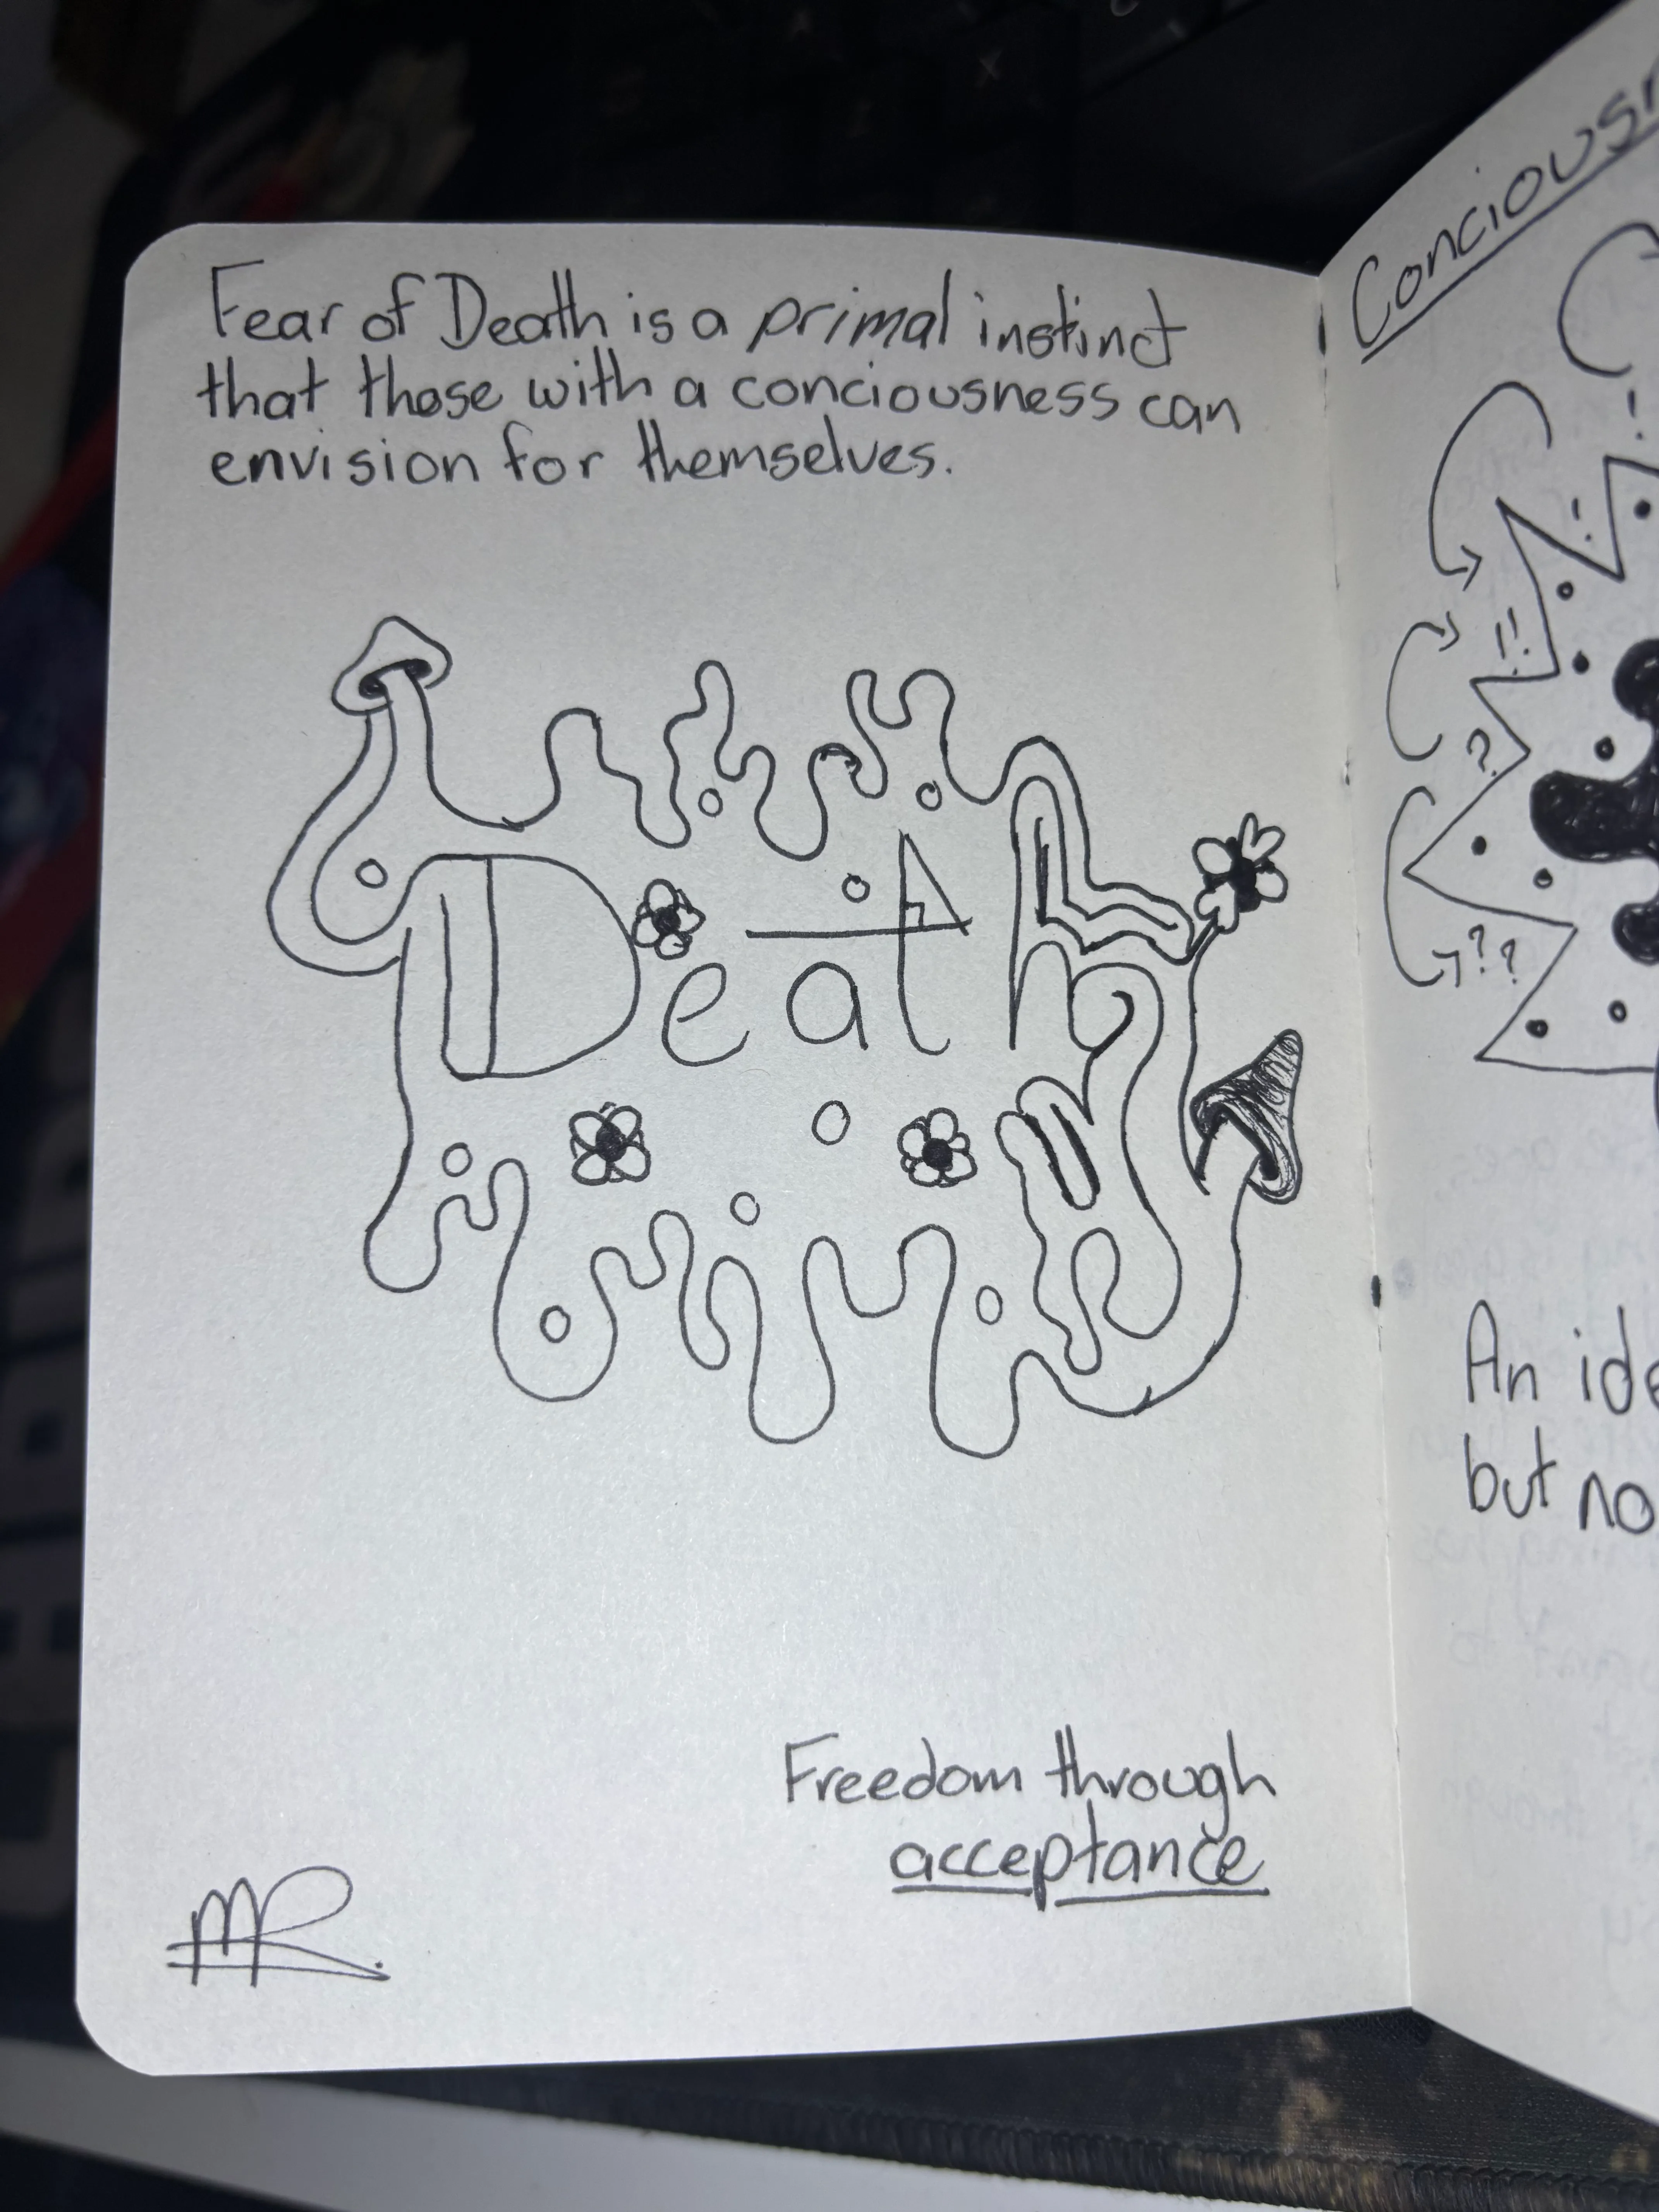 Fear of Death is a primal instinct
that those with a conciousness can
envision for themselves.
Death
Freedom through
acceptance
MR.
?
??
An
but no